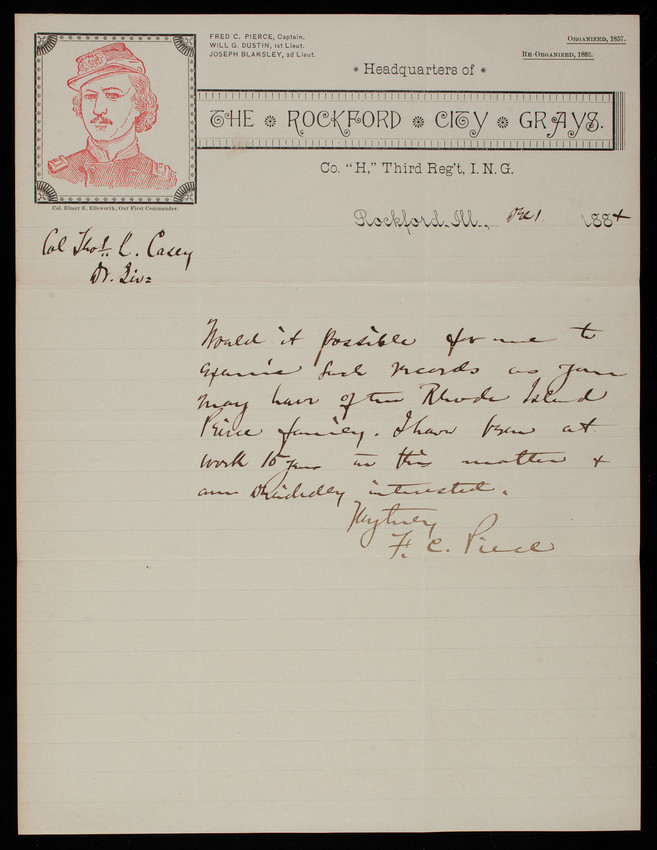 FRED C. PIERCE, Captain.
WILL G. DUSTIN, 1st Lieut.
JOSEPH BLAKSLEY, 2d Lieut.
ORGANIZED, 1857.
RE-ORGANIZED, 1882.
* Headquarters of *
THE ROCKFORD CITY GRAYS.
Co. "H," Third Reg't, I. N. G.
Col. Elmer E. Ellsworth, Our First Commander.
Rockford, Ill., Dec 1 1884
Col Thos. L. Casey
Dr. Sir=
Would it possible for me to
examine such records as you
may have of the Rhode Island
Peirce family. I have been at
work 15 years in this matter &
am decidedly interested.
Very truly
F. C. Pierce